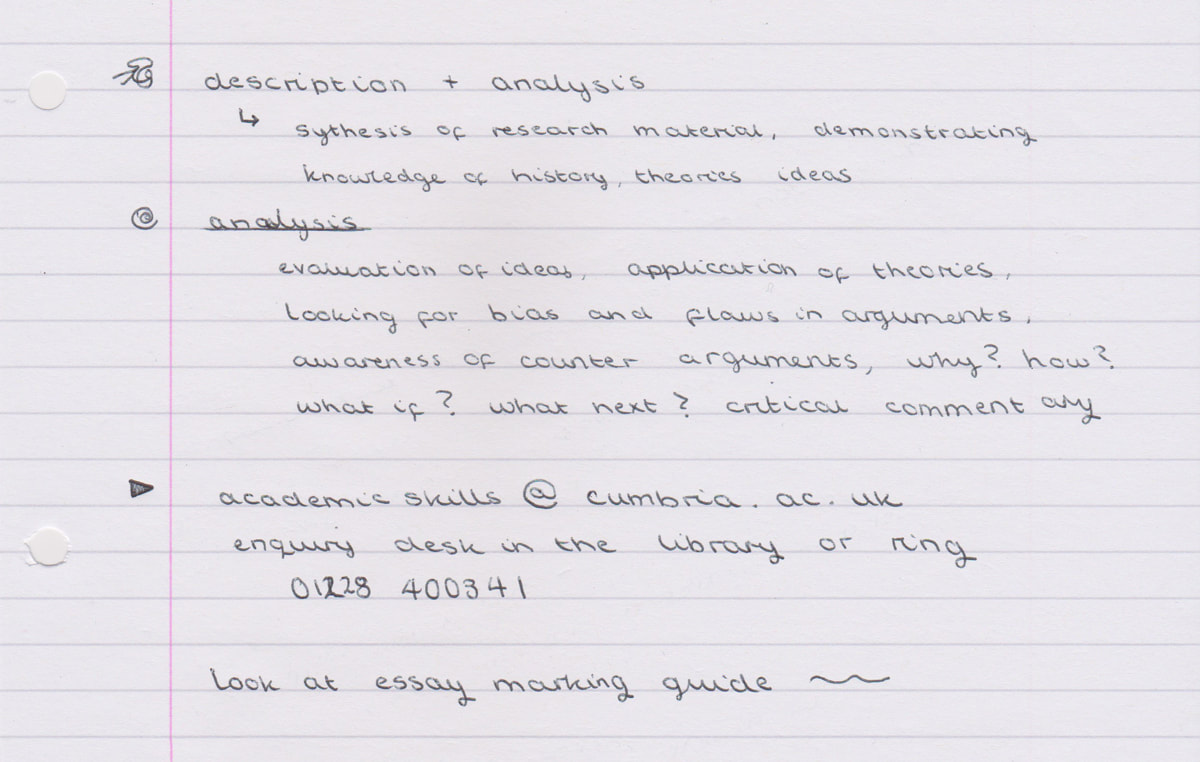 description + analysis
↳ sythesis of research material, demonstrating
knowledge of history, theories ideas
analysis
evaluation of ideas, application of theories,
Looking for bias and flaws in arguments,
awareness of counter arguments, why? how?
what if? what next? critical comment ary
academic skills @ cumbria. ac. uk
enquiry desk in the library or ring
01228 400341
Look at essay marking guide